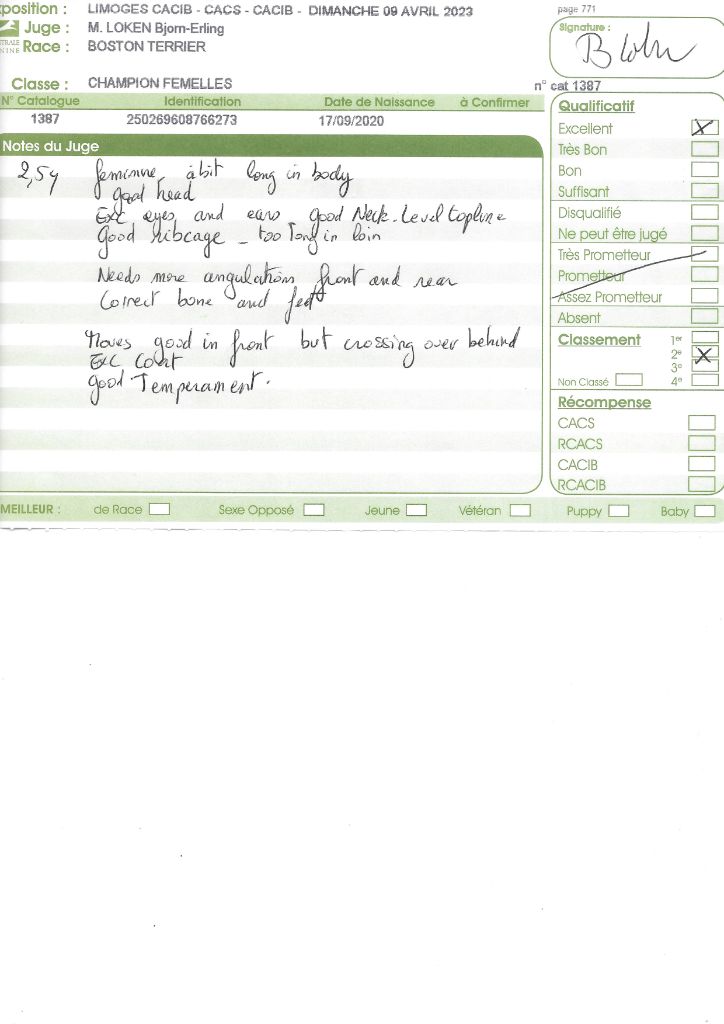 xposition : LIMOGES CACIB - CACS - CACIB - DIMANCHE 09 AVRIL 2023
page 771
Juge : M. LOKEN Bjorn-Erling
Signature :
Race : BOSTON TERRIER
Classe : CHAMPION FEMELLES
n° cat 1387
N° Catalogue Identification Date de Naissance à Confirmer
1387 250269608766273 17/09/2020
Notes du Juge
2,5y feminine, a bit long in body
good head
Exc eyes and ears good Neck - Level topline
Good ribcage - too long in loin
Needs more angulations front and rear
Correct bone and feet
Moves good in front but crossing over behind
Exc coat
good Temperament.
Qualificatif
Excellent
Très Bon
Bon
Suffisant
Disqualifié
Ne peut être jugé
Très Prometteur
Prometteur
Assez Prometteur
Absent
Classement 1er
2e
3e
Non Classé 4e
Récompense
CACS
RCACS
CACIB
RCACIB
MEILLEUR : de Race Sexe Opposé Jeune Vétéran Puppy Baby